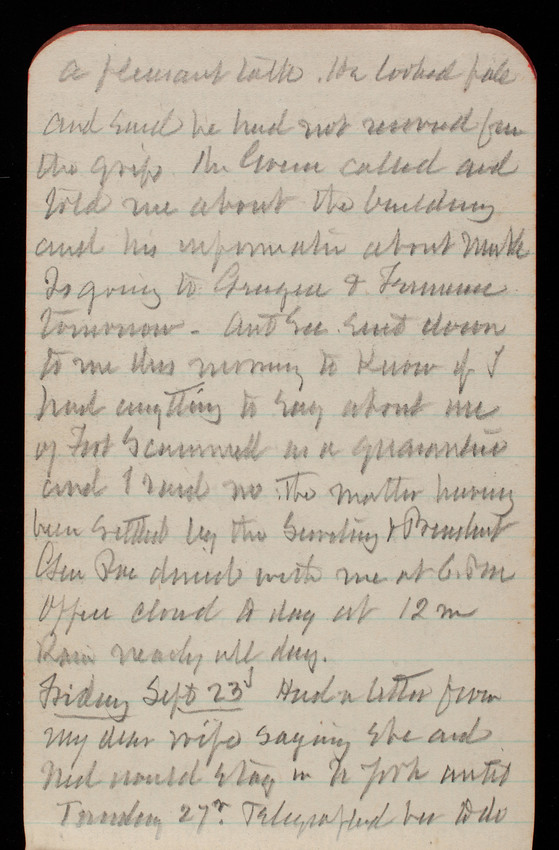 a pleasant talk. He looked pale
and said he had not recovered from
the grip. Mr Green called and
told me about the building
and his information about
Is going to &
tomorrow - Ant Sec. sent down
to me this morning to know if I
had anything to say about use
of Fort Scammell as a quarantine
and I said no. The matter having
been settled by the Secretary & President
Gen dined with me at 6. P m
Office closed to day at 12 m
Rain nearly all day.
Friday Sept 23d Had a letter from
my dear wife saying she and
Ned would stay in N York until
Tuesday 27th. Telegraphed her to do